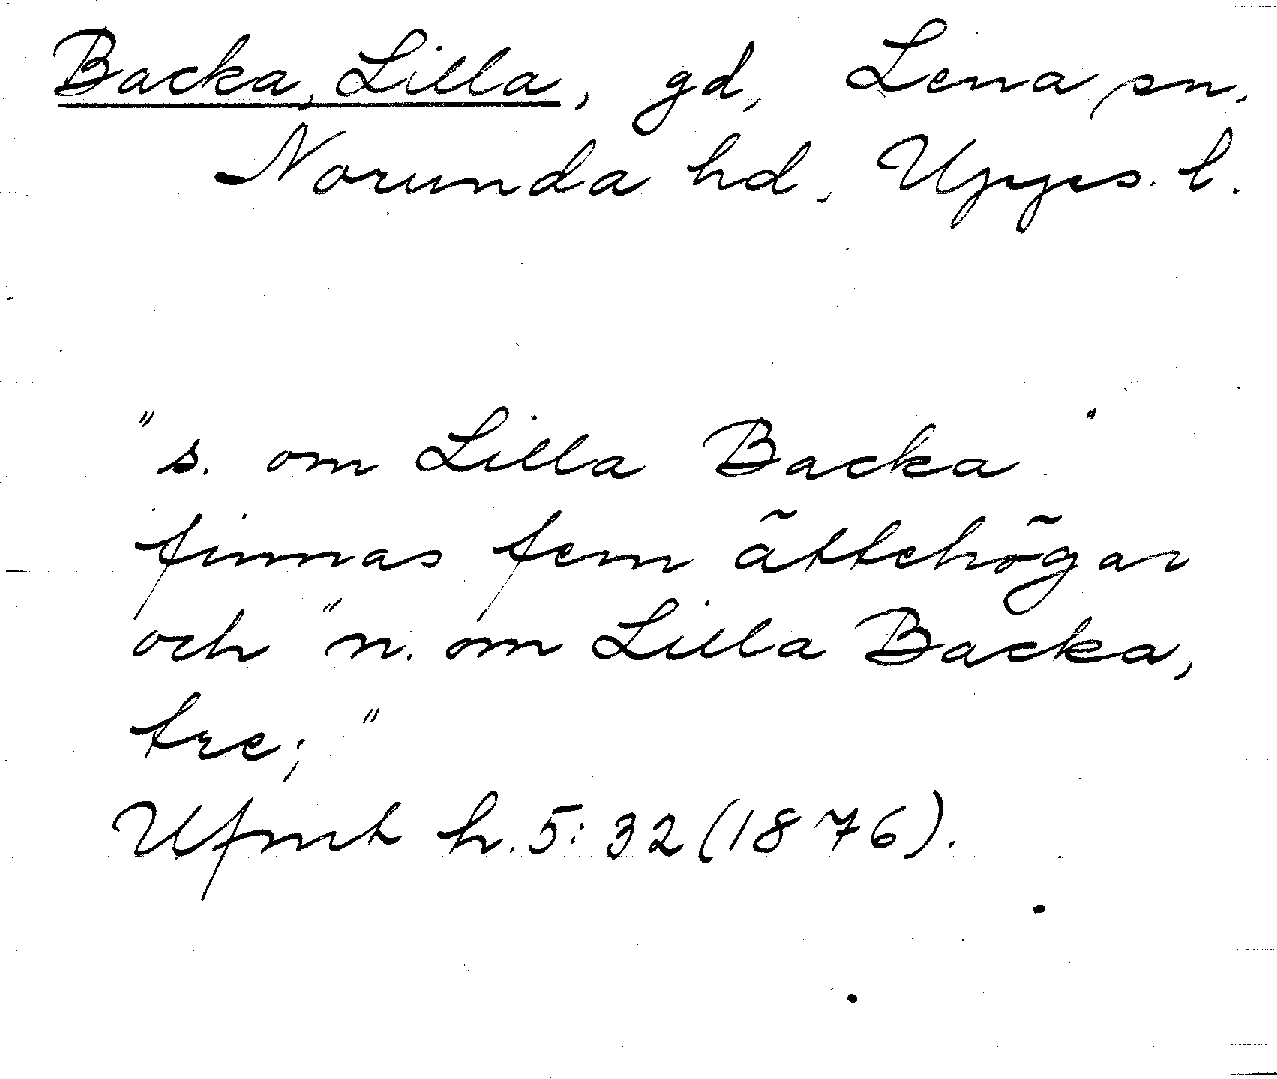 Backa, Lilla, gd, Lena sn.
Norunda hd, Upps. l.
"s. om Lilla Backa"
finnas fem ättehögar
och "n. om Lilla Backa,
tre;"
Ufmt h. 5: 32 (1876).